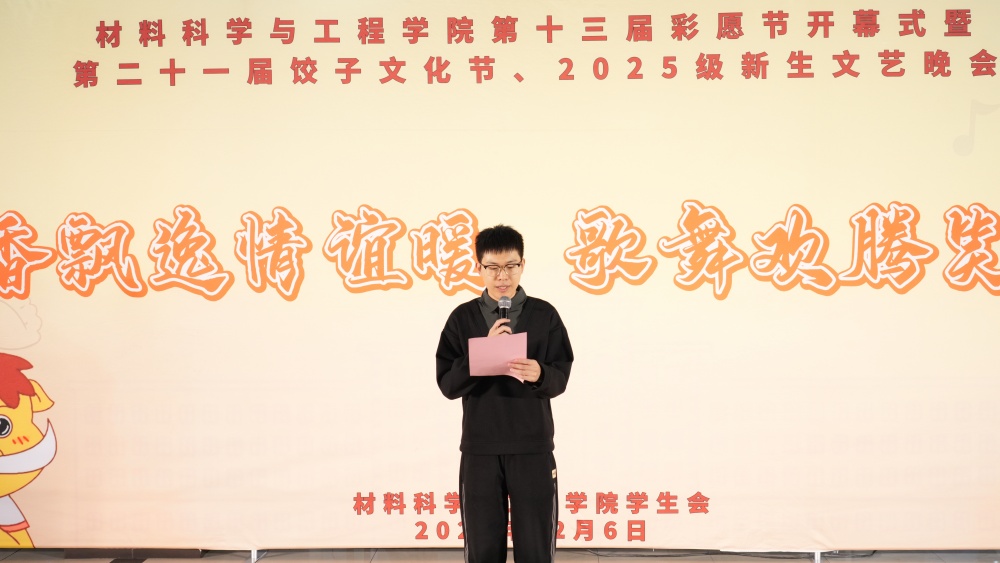 材料科学与工程学院第十三届彩愿节开幕式暨
第二十一届饺子文化节、2025级新生文艺晚会
香飘逸情谊暖 歌舞欢腾
材料科学 学院学生会
202 2月6日